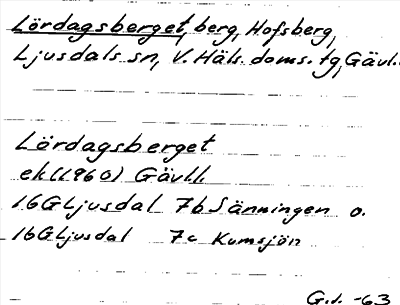 Lördagsberget, berg, Hofsberg,
Ljusdals sn, V. Häls. doms. tg, Gävl.
Lördagsberget
ek (1960) Gävl.l.
16G Ljusdal 7b Sänningen o.
16G Ljusdal 7c Kumsjön
G.J. -63